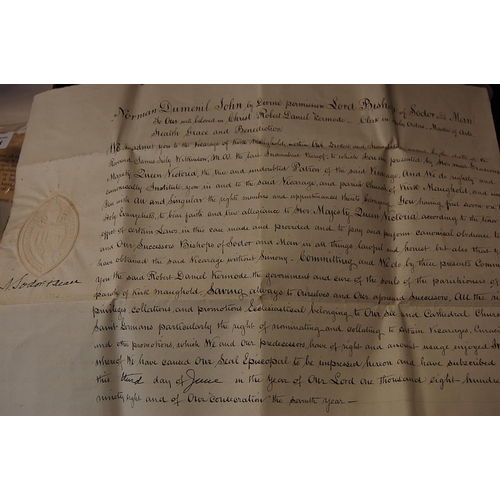 Norman Dumenil John by Divine permission Lord Bishop of Sodor and Man
To Our well beloved in Christ Robert Daniel Kermode Clerk in Holy Orders Master of Arts
Health Grace and Benediction
We do admit you to the Vicarage of Kirk Maughold within Our Diocese and
Reverend James Senly M.A. the last Incumbent thereof, to which you are presented by Her most Gracious
Majesty Queen Victoria, the true and undoubted Patron of the said Vicarage. And We do rightly and
canonically Institute you in and to the said Vicarage, and parish Church of Kirk Maughold and
you with All and Singular the rights members and appurtenances thereto belonging You having first sworn on the
Holy Evangelists, to bear faith and true allegiance to Her Majesty Queen Victoria according to the
effect of certain Laws in this case made and provided and to pay and perform canonical obedience to
and Our Successors Bishops of Sodor and Man in all things lawful and honest but also that
have obtained the said Vicarage without Simony. Committing and We do by these presents Commit
you the said Robert Daniel Kermode the government and cure of the souls of the parishioners of
parish of Kirk Maughold, Saving always to Ourselves and Our aforesaid Successors, All the
privileges collations and promotions Ecclesiastical belonging to Our See and Cathedral Church
Saint Germans particularly the right of nominating and collating to certain Vicarages,
and other promotions, which We and Our predecessors have of right and ancient usage enjoyed In
whereof We have caused Our Seal Episcopal to be impressed hereon and have subscribed
this third day of June in the Year of Our Lord One thousand eight hundred
ninety eight and of Our Consecration the seventh Year—
Sodor & Man